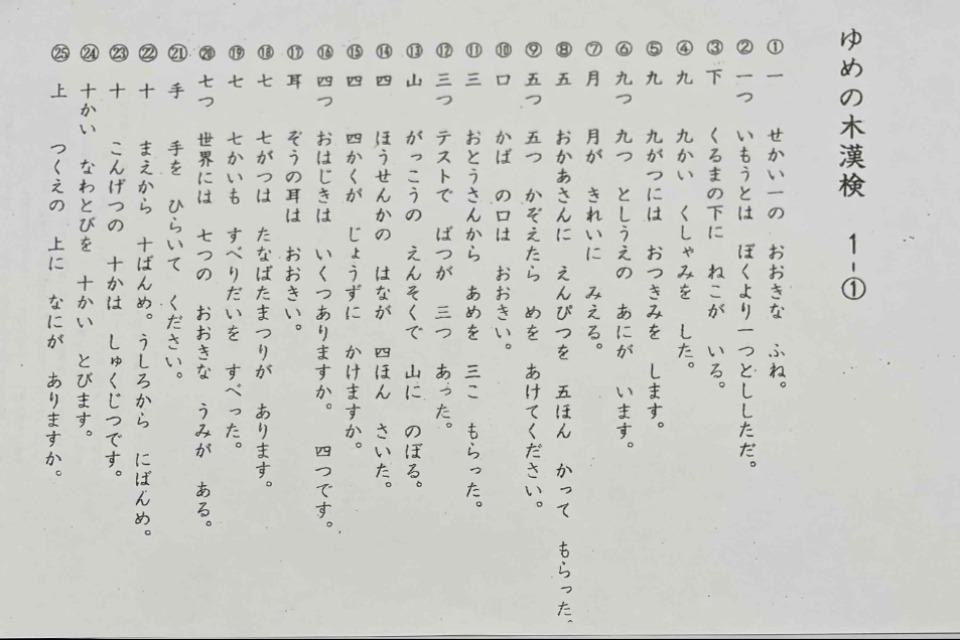 ゆめの木漢検 1-①
① 一 せかい一の おおきな ふね。
② 一つ いもうとは ぼくより一つとししただ。
③ 下 くるまの下に ねこが いる。
④ 九 九かい くしゃみを した。
⑤ 九 九がつには おつきみを します。
⑥ 九つ 九つ としうえの あにが います。
⑦ 月 月が きれいに みえる。
⑧ 五 おかあさんに えんぴつを 五ほん かって もらった。
⑨ 五つ 五つ かぞえたら めを あけてください。
⑩ 口 かば の口は おおきい。
⑪ 三 おとうさんから あめを 三こ もらった。
⑫ 三つ テストで ばつが 三つ あった。
⑬ 山 がっこうの えんそくで 山に のぼる。
⑭ 四 ほうせんかの はなが 四ほん さいた。
⑮ 四 四かくが じょうずに かけますか。
⑯ 四つ おはじきは いくつありますか。 四つです。
⑰ 耳 ぞうの耳は おおきい。
⑱ 七 七がつは たなばたまつりが あります。
⑲ 七 七かいも すべりだいを すべった。
⑳ 七つ 世界には 七つの おおきな うみが ある。
㉑ 手 手を ひらいて ください。
㉒ 十 まえから 十ばんめ。うしろから にばんめ。
㉓ 十 こんげつの 十かは しゅくじつです。
㉔ 十かい なわとびを 十かい とびます。
㉕ 上 つくえの 上に なにが ありますか。